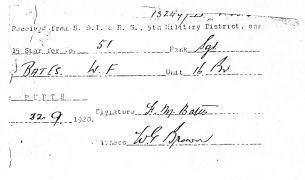 Received from S. O. I. & R. S., 5th Military District, one
Star for No. 51 Rank Sgt
BATES W. F Unit 16 Bn
PERTH
22 9 1920. Signature
Witness WG Brown